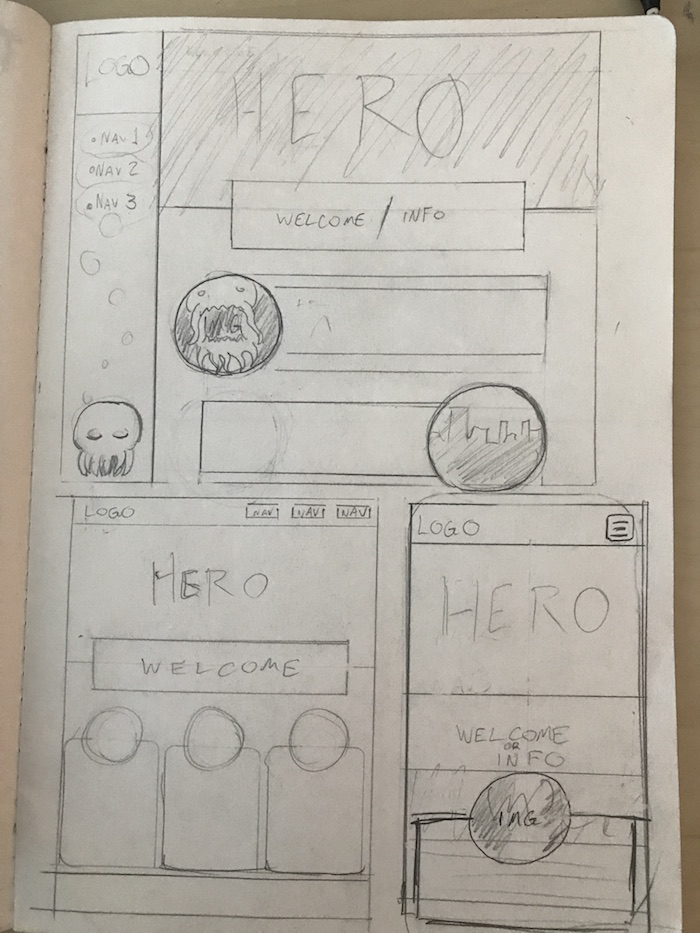 LOGO
HERO
NAV 1
NAV 2
NAV 3
WELCOME / INFO
IMG
LOGO
NAV NAV NAV
HERO
WELCOME
LOGO
HERO
WELCOME
OR
INFO
IMG